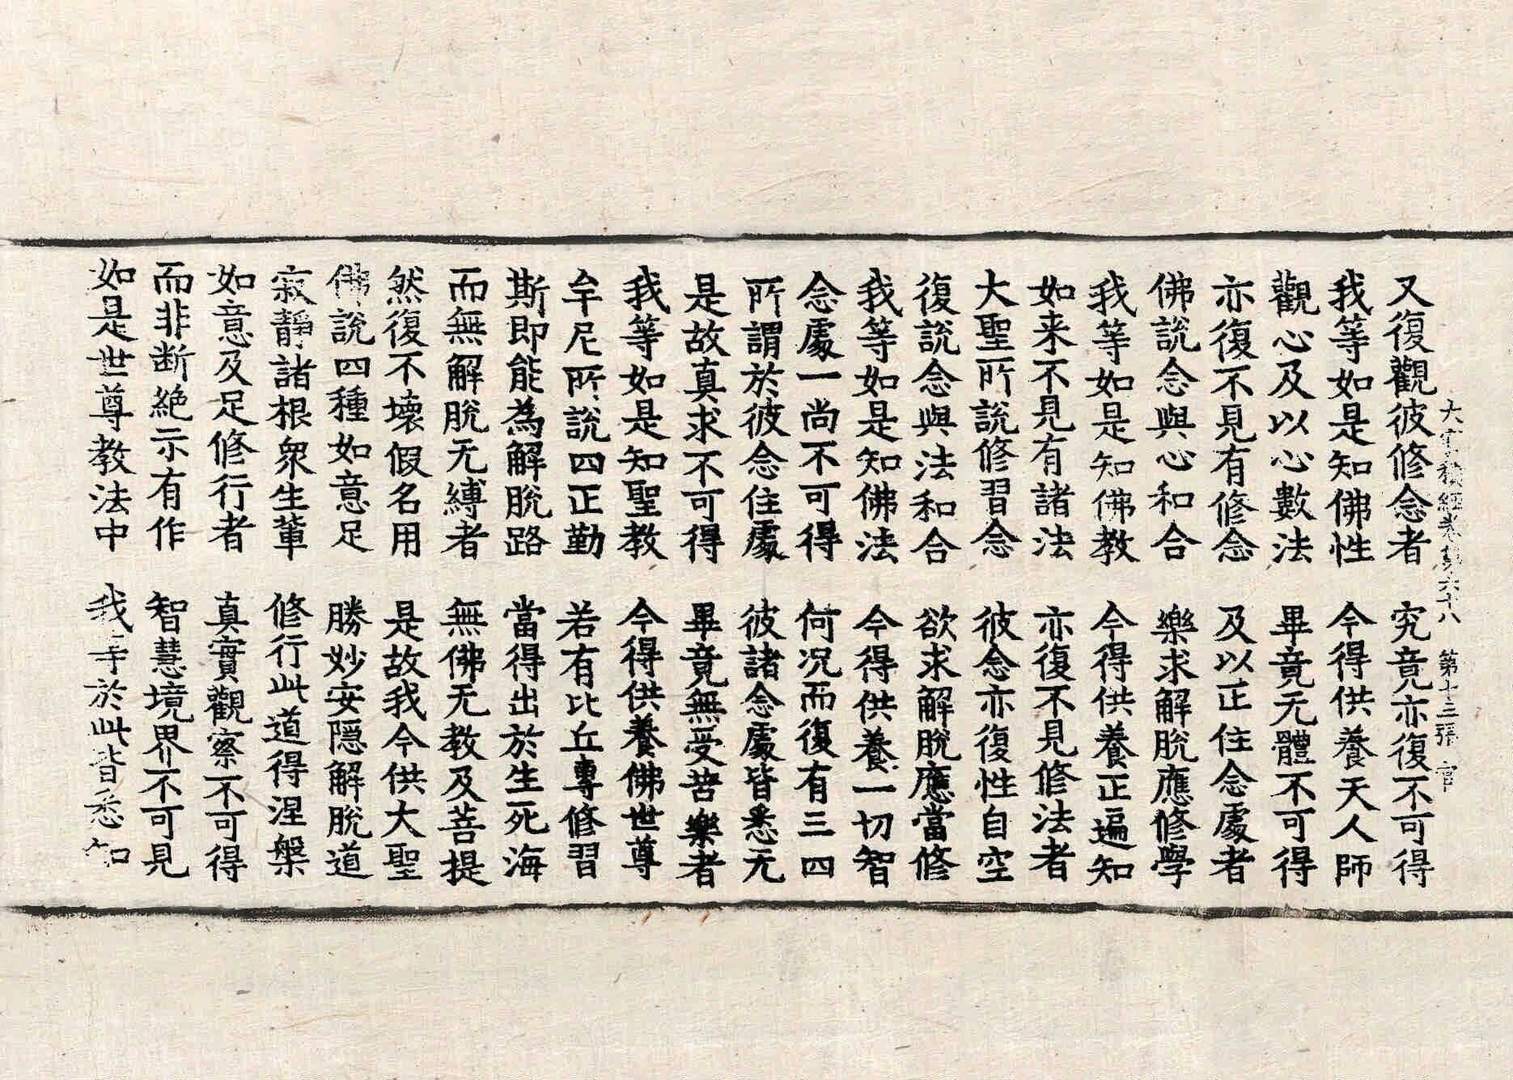 大寶積經卷第六十八 第十三張 官
又復觀彼修念者 究竟亦復不可得
我等如是知佛性 今得供養天人師
觀心及以心數法 畢竟无體不可得
亦復不見有修念 及以正住念處者
佛說念與心和合 樂求解脫應修學
我等如是知佛教 今得供養正遍知
如来不見有諸法 亦復不見修法者
大聖所說修習念 彼念亦復性自空
復說念與法和合 欲求解脫應當修
我等如是知佛法 今得供養一切智
念處一尚不可得 何况而復有三四
所謂於彼念住處 彼諸念處皆悉无
是故真求不可得 畢竟無受苦樂者
我等如是知聖教 今得供養佛世尊
牟尼所說四正勤 若有比丘專修習
斯即能為解脫路 當得出於生死海
而無解脫无縛者 無佛无教及菩提
然復不壞假名用 是故我今供大聖
佛說四種如意足 勝妙安隱解脫道
寂靜諸根衆生輩 修行此道得涅槃
如意及足修行者 真實觀察不可得
而非斷絕示有作 智慧境界不可見
如是世尊教法中 我等於此皆悉知